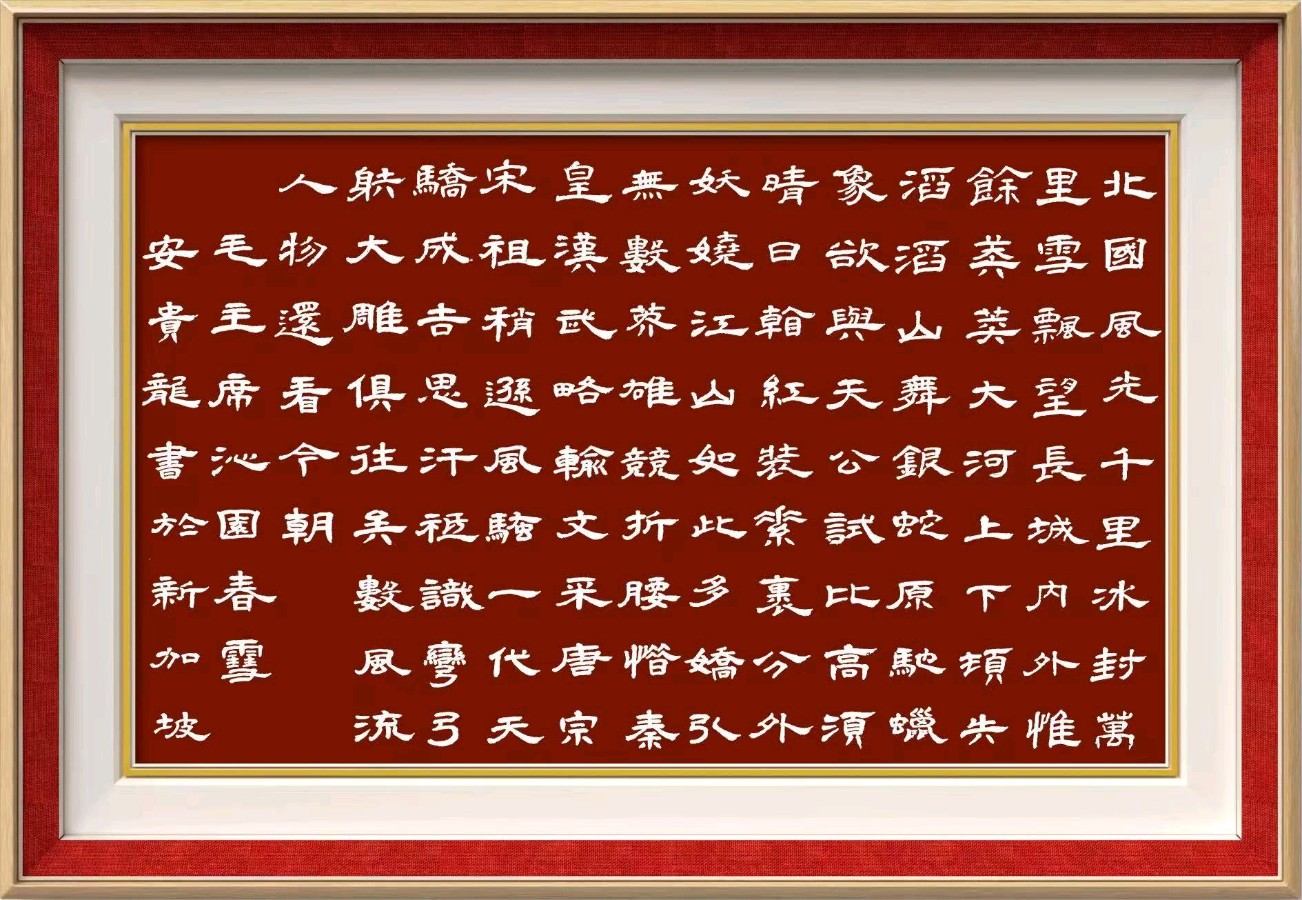 北國風光千里冰封萬
里雪飄望長城内外惟
餘莽莽大河上下頓失
滔滔山舞銀蛇原馳蠟
象欲與天公試比高須
晴日看紅裝素裹分外
妖嬈江山如此多嬌引
無數英雄競折腰惜秦
皇漢武略輸文采唐宗
宋祖稍遜風騷一代天
驕成吉思汗祗識彎弓
射大雕俱往矣數風流
人物還看今朝
毛主席沁園春雪
安貴龍書於新加坡